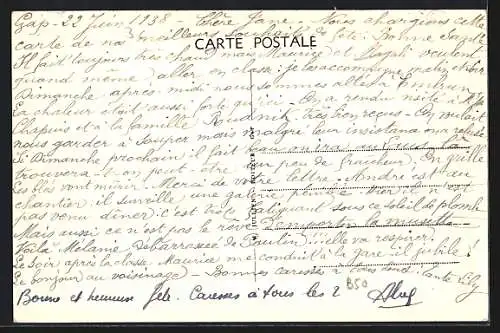 Gap - 22 Juin 1938 - Chère Jane - Nous chargeons cette
carte de nos meilleurs souhaits de fête : Bonne Santé
CARTE POSTALE
Il fait toujours très chaud mais Maurice et Magali veulent
quand même aller en classe : je les accompagne matin et soir
Dimanche après-midi nous sommes allés à Embrun
la chaleur était aussi forte qu'ici - On a rendu visite à
Chapuis et à la famille très bien reçus - On voulait
nous garder à souper mais malgré leur insistance on a refusé
Si Dimanche prochain il fait beau on ira au
trouvera-t-on peut-être un peu de fraîcheur. On grille
les blés vont mûrir. Merci de votre lettre. André est au
chantier : il surveille une galerie hier il n'est
pas venu dîner c'est très fatiguant sous ce soleil de plomb
Mais aussi ce n'est pas le rêve d'emporter la musette
Voilà Mélanie débarrassée de Paulin elle va respirer.
Le soir après la classe Maurice me conduit à la gare il jubile !
Le bonjour au voisinage - Bonnes caresses à tous deux. tante Lily
Bonne et heureuse fête. Caresses à tous les 2
B50